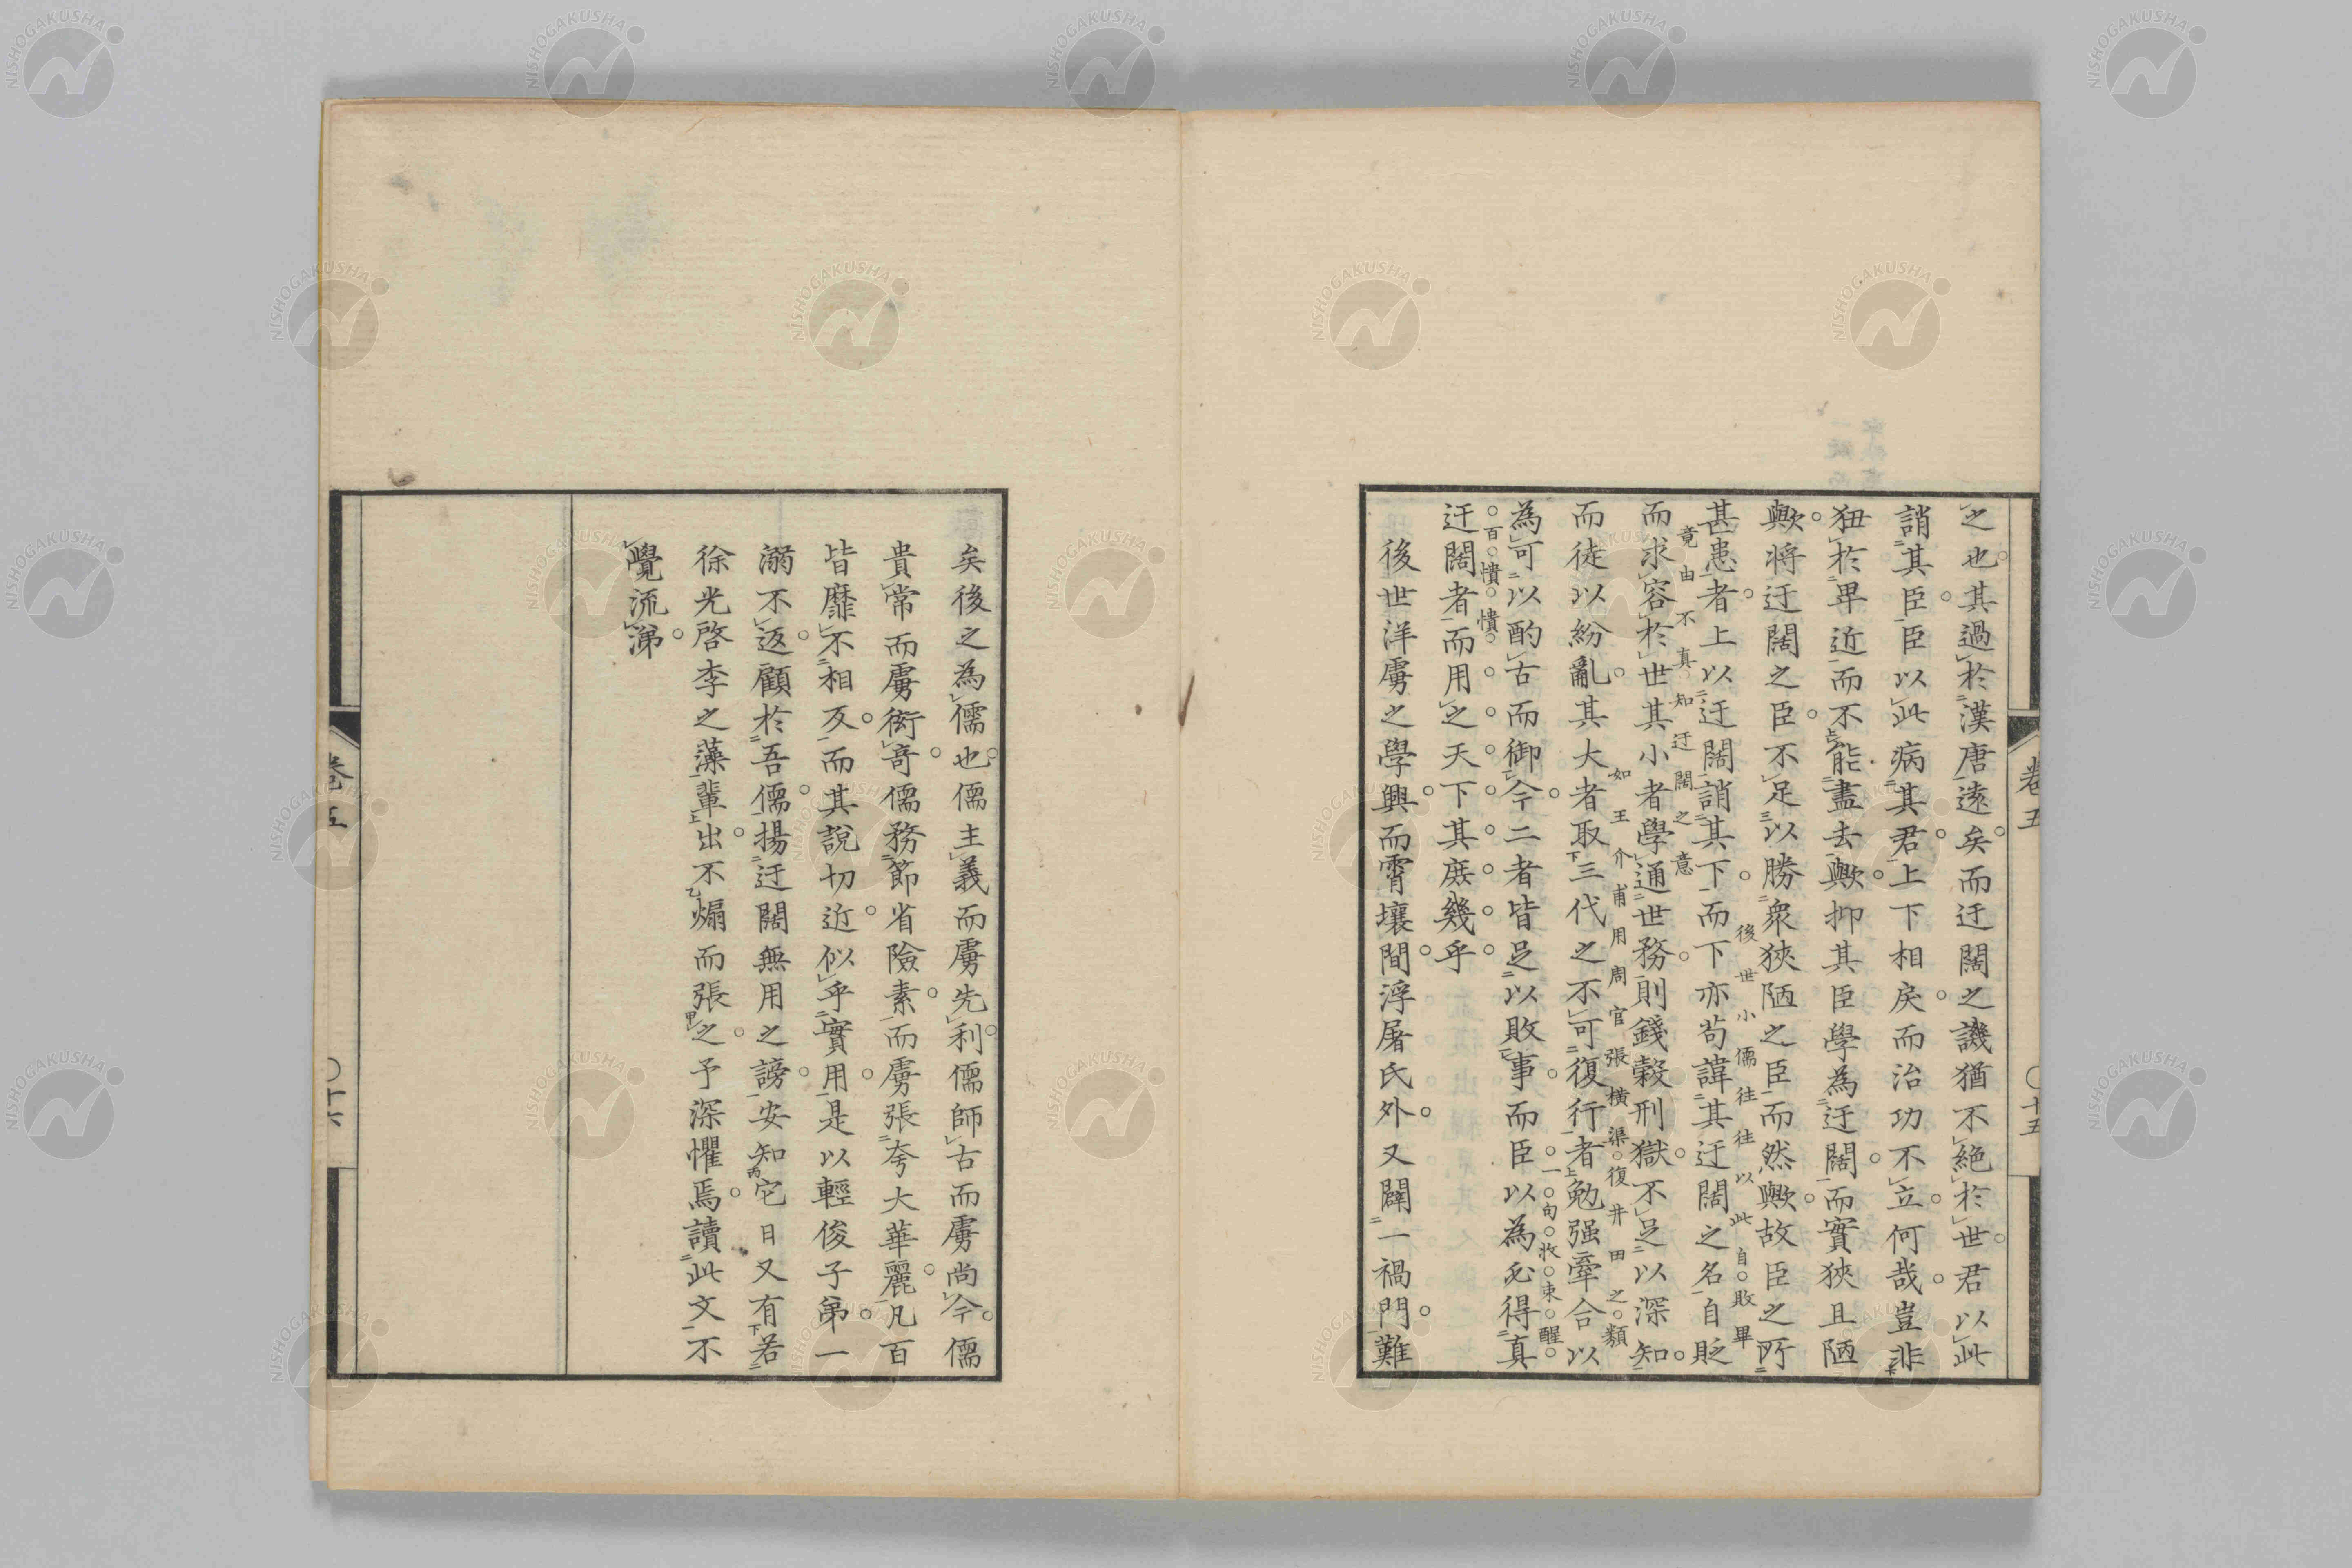 之也其過於漢唐遠矣而迂闊之譏猶不絶於世君以此
誚其臣臣以此病其君上下相戾而治功不立何哉豈非
狃於卑近而不能盡去歟抑其臣學為迂闊而實狹且陋
歟将迂闊之臣不足以勝衆狹陋之臣而然歟故臣之所
甚患者上以迂闊誚其下而下亦苟諱其迂闊之名自貶
後世小儒往往以此自敗畢
竟由不真知迂闊之意
而求容於世其小者學通世務則錢穀刑獄不足以深知
而徒以紛亂其大者取三代之不可復行者勉强牽合以
如王介甫用周官張橫渠復井田之類
為可以酌古而御今二者皆足以敗事而臣以為必得真
迂闊者而用之天下其庶幾乎
一句收束醒
百憒憒
後世洋虜之學興而霄壤間浮屠氏外又闢一禍門難
卷五
十五
矣後之為儒也儒主義而虜先利儒師古而虜尚今儒
貴常而虜衒竒儒務節省險素而虜張夸大華麗凡百
皆靡不相反而其說切近似乎實用是以輕俊子弟一
溺不返顧於吾儒揚迂闊無用之謗安知它日又有若
徐光啓李之藻輩出不煽而張之予深懼焉讀此文不
覺流涕
卷五
十六
NISHOGAKUSHA